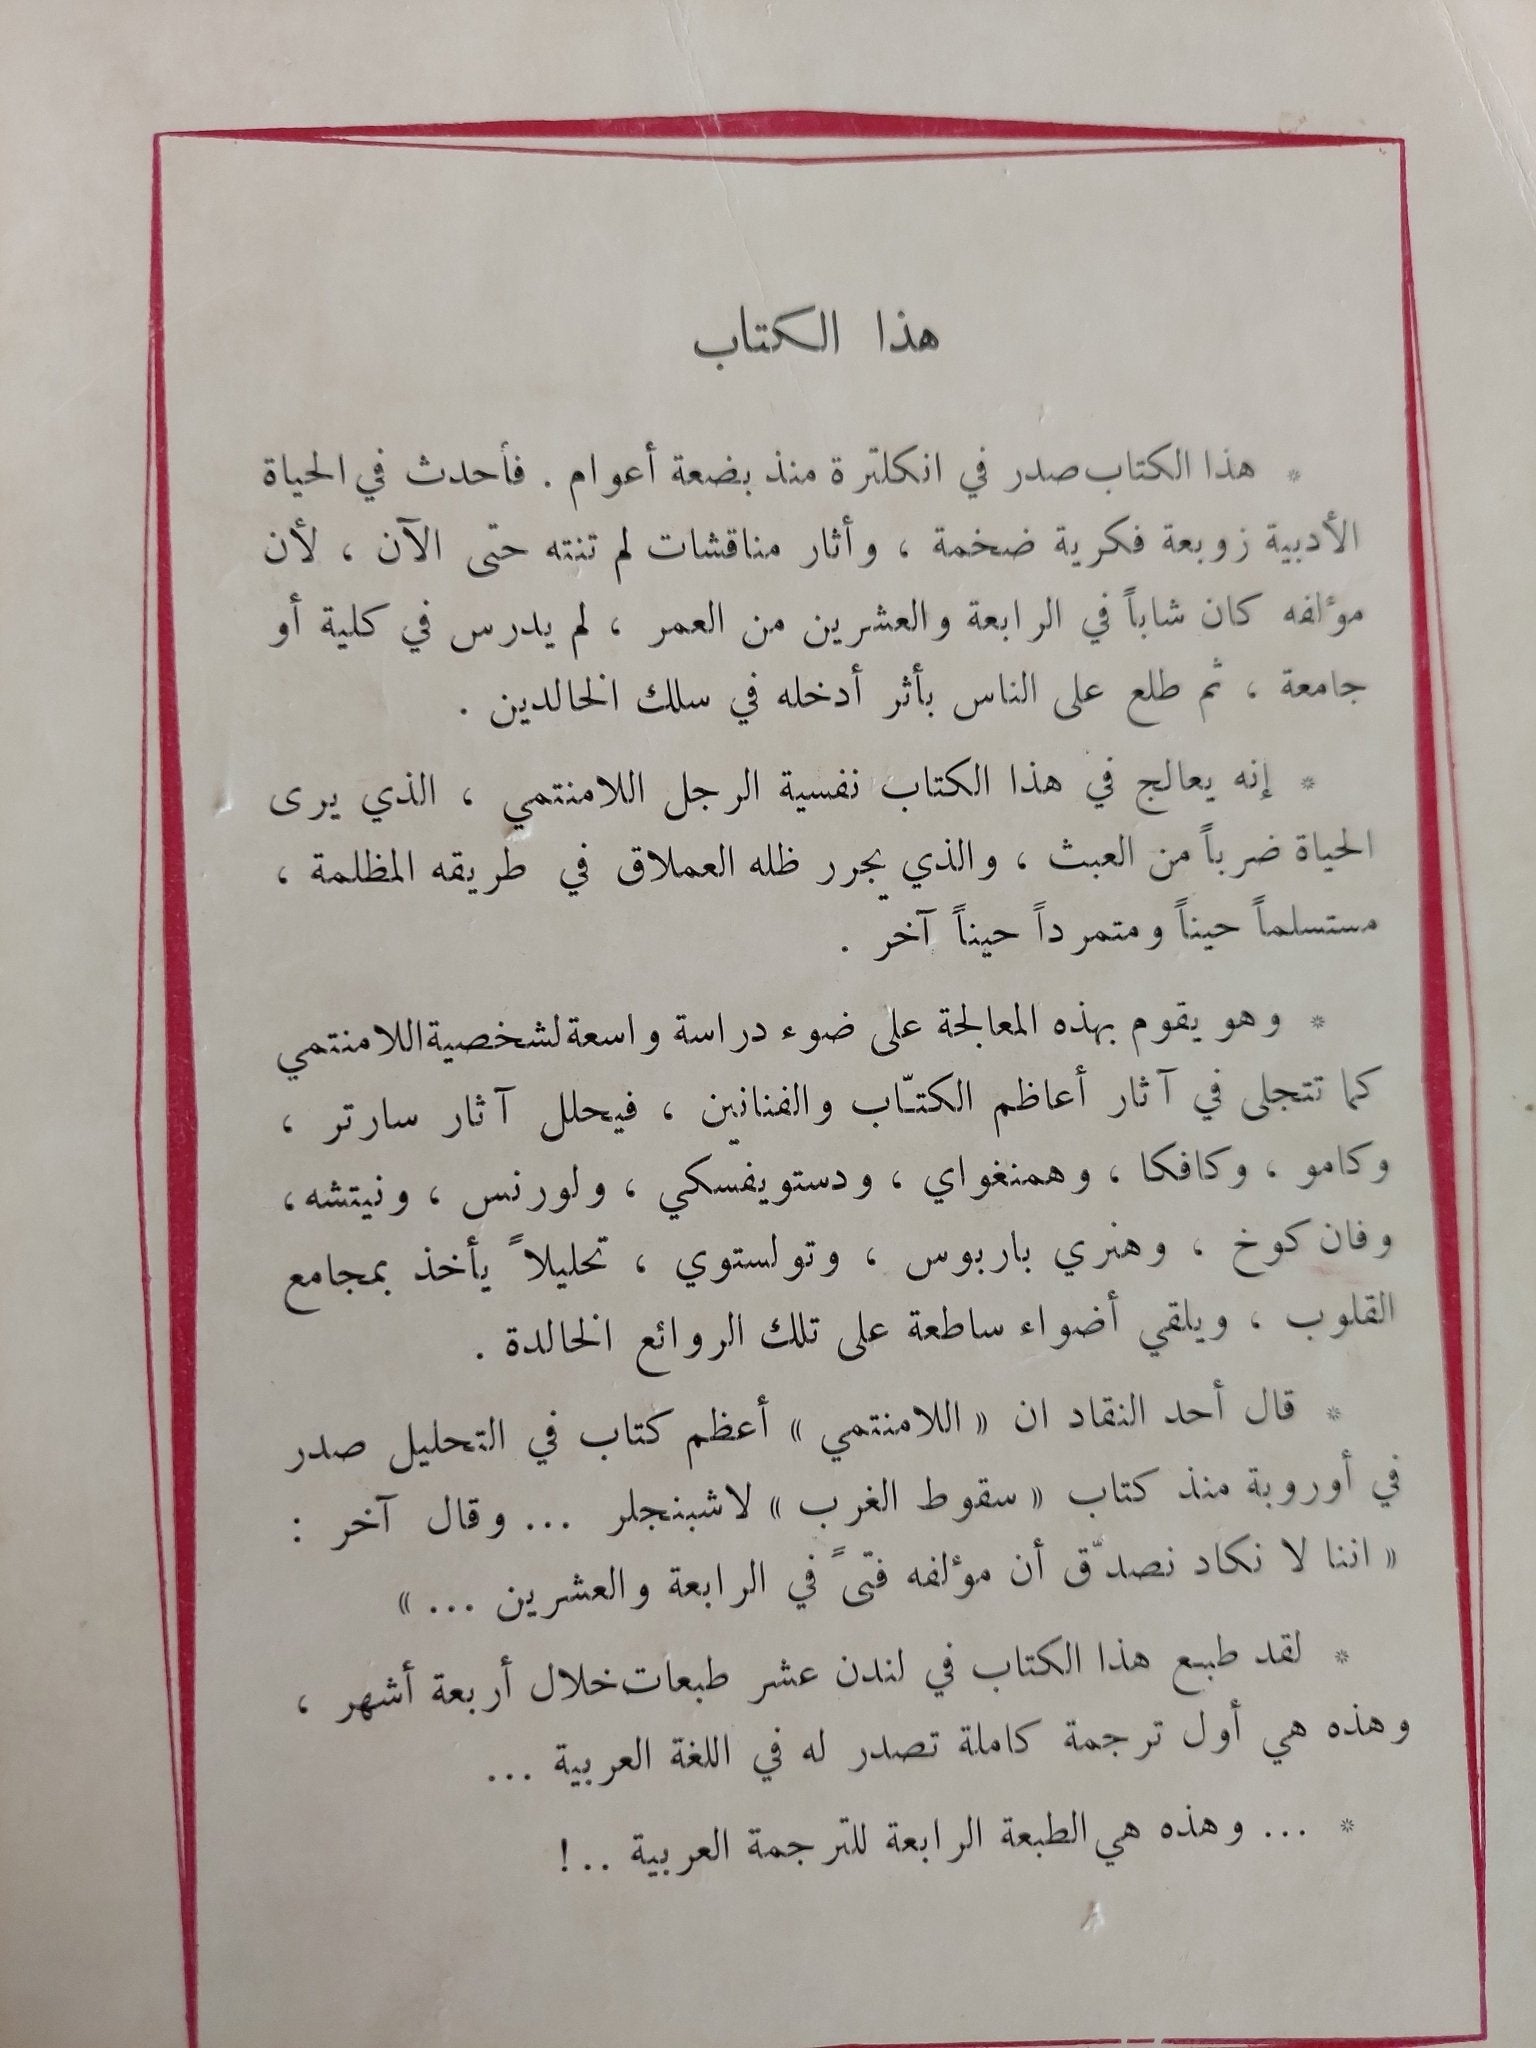 هذا الكتاب
* هذا الكتاب صدر في انكلترة منذ بضعة أعوام . فأحدث في الحياة
الأدبية زوبعة فكرية ضخمة ، وأثار مناقشات لم تنته حتى الآن ، لأن
مؤلفه كان شاباً في الرابعة والعشرين من العمر ، لم يدرس في كلية أو
جامعة ، ثم طلع على الناس بأثر أدخله في سلك الخالدين .
* إنه يعالج في هذا الكتاب نفسية الرجل اللامنتمي ، الذي يرى
الحياة ضرباً من العبث ، والذي يجرر ظله العملاق في طريقه المظلمة ،
مستسلماً حيناً ومتمرداً حيناً آخر .
* وهو يقوم بهذه المعالجة على ضوء دراسة واسعة لشخصية اللامنتمي
كما تتجلى في آثار أعاظم الكتّاب والفنانين ، فيحلل آثار سارتر ،
وكامو ، وكافكا ، وهمنغواي ، ودستويفسكي ، ولورنس ، ونيتشه ،
وفان كوخ ، وهنري باربوس ، وتولستوي ، تحليلاً يأخذ بمجامع
القلوب ، ويلقي أضواء ساطعة على تلك الروائع الخالدة .
* قال أحد النقاد ان « اللامنتمي » أعظم كتاب في التحليل صدر
في أوروبة منذ كتاب « سقوط الغرب » لاشبنجلر ... وقال آخر :
« اننا لا نكاد نصدّق أن مؤلفه فتىً في الرابعة والعشرين ... »
* لقد طبع هذا الكتاب في لندن عشر طبعات خلال أربعة أشهر ،
وهذه هي أول ترجمة كاملة تصدر له في اللغة العربية ...
* ... وهذه هي الطبعة الرابعة للترجمة العربية ..!